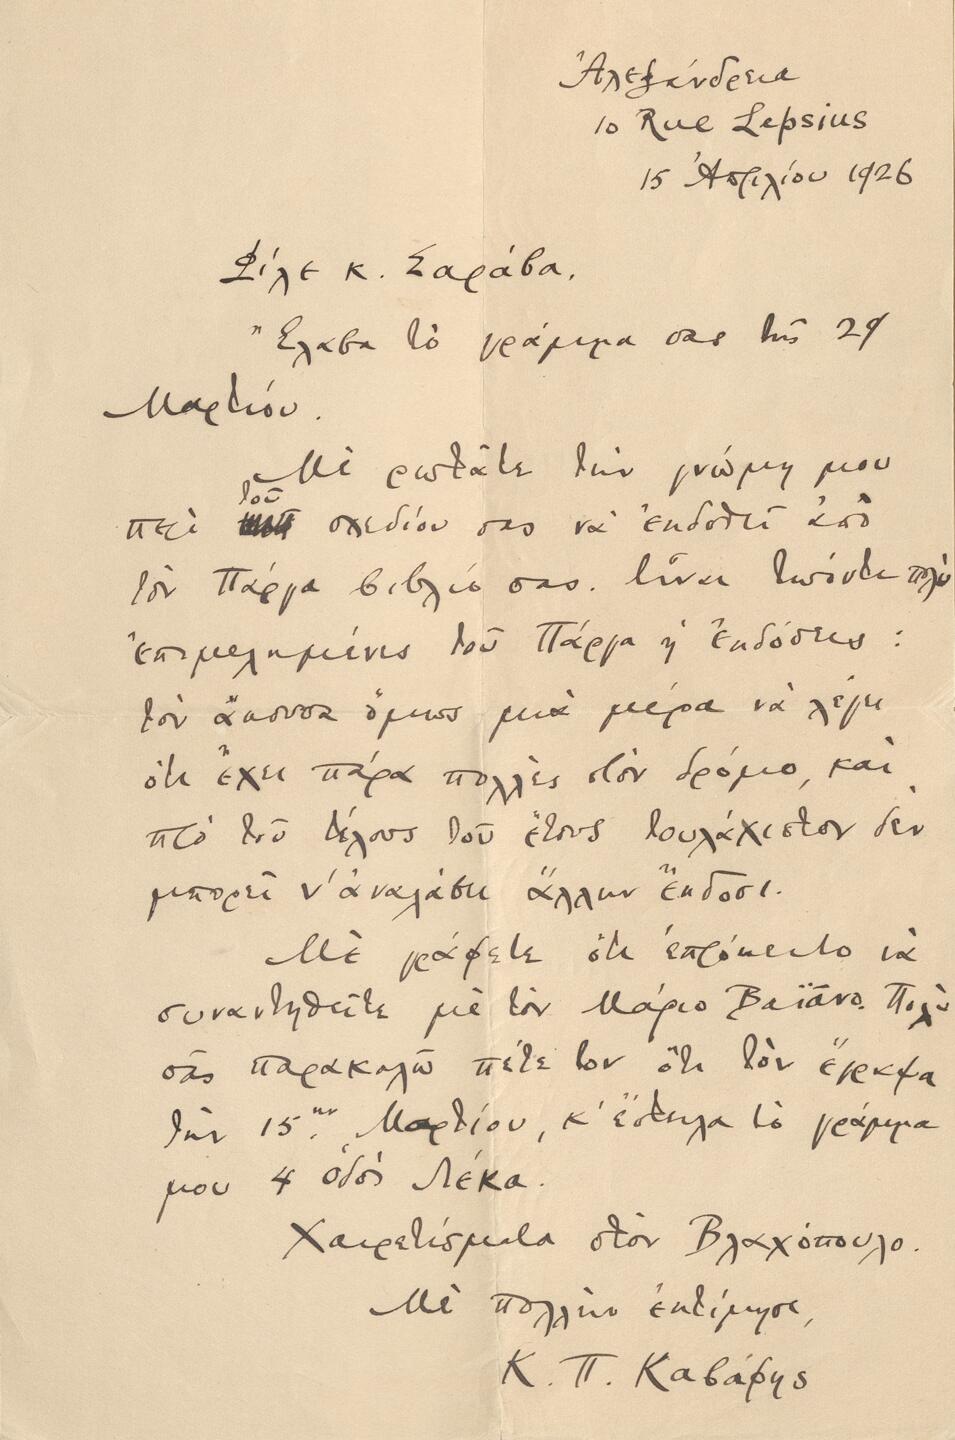 Ἀλεξάνδρεια
10 Rue Lepsius
15 Ἀπριλίου 1926
Φίλε κ. Σαράβα,
Ἔλαβα τὸ γράμμα σας τῆς 29
Μαρτίου.
Μὲ ρωτᾶτε τὴν γνώμη μου
περὶ τοῦ σχεδίου σας νὰ ἐκδοθεῖ ἀπὸ
τὸν Πάργα βιβλίο σας. Εἶναι τωόντι πολὺ
ἐπιμελημένες τοῦ Πάργα ἡ ἐκδόσεις :
τὸν ἄκουσα ὅμως μιὰ μέρα νὰ λέγει
ὅτι ἔχει πάρα πολλὲς στὸν δρόμο, καὶ
πρὸ τοῦ τέλους τοῦ ἔτους τουλάχιστον δὲν
μπορεῖ ν' ἀναλάβει ἄλλην ἔκδοσι.
Μὲ γράφετε ὅτι ἐπρόκειτο νὰ
συναντηθεῖτε μὲ τὸν Μάριο Βαϊάνο. Πολὺ
σᾶς παρακαλῶ πέτε τον ὅτι τὸν ἔγραψα
τὴν 15ην Μαρτίου, κ' ἔστειλα τὸ γράμμα
μου 4 ὁδὸς Λέκα.
Χαιρετίσματα στὸν Βλαχόπουλο.
Μὲ πολλὴν ἐκτίμησι,
Κ. Π. Καβάφης